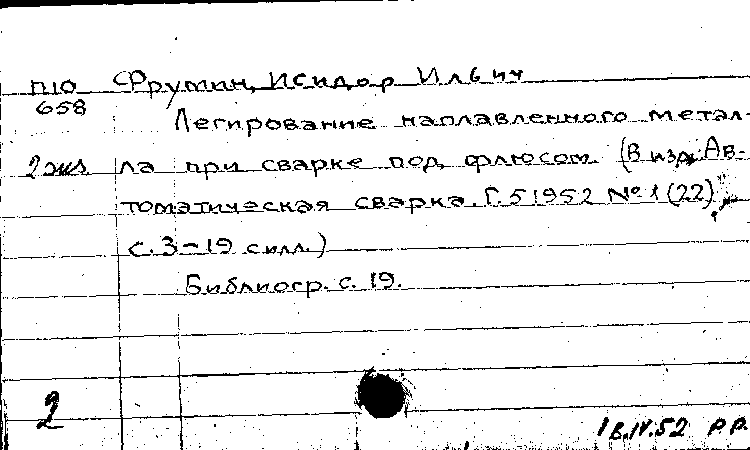 П10 Фрумин, Исидор Ильич
658
Легирование наплавленного метал-
2 экз ла при сварке под флюсом. (В изд: Ав-
томатическая сварка. Г. 5 1952 № 1 (22)
с. 3-19 с илл.)
Библиогр. с. 19.
2
18.IV.52 р.р.